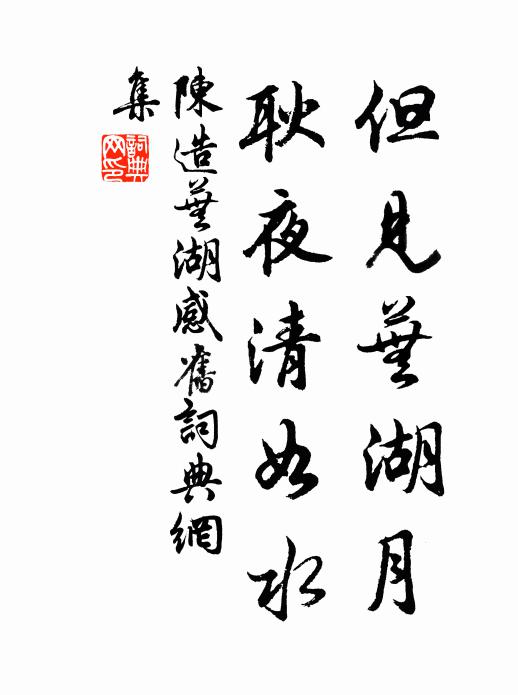 但見蕪湖月
耿夜清如水
陳造蕪湖感舊詞典網
集
詞典
网印